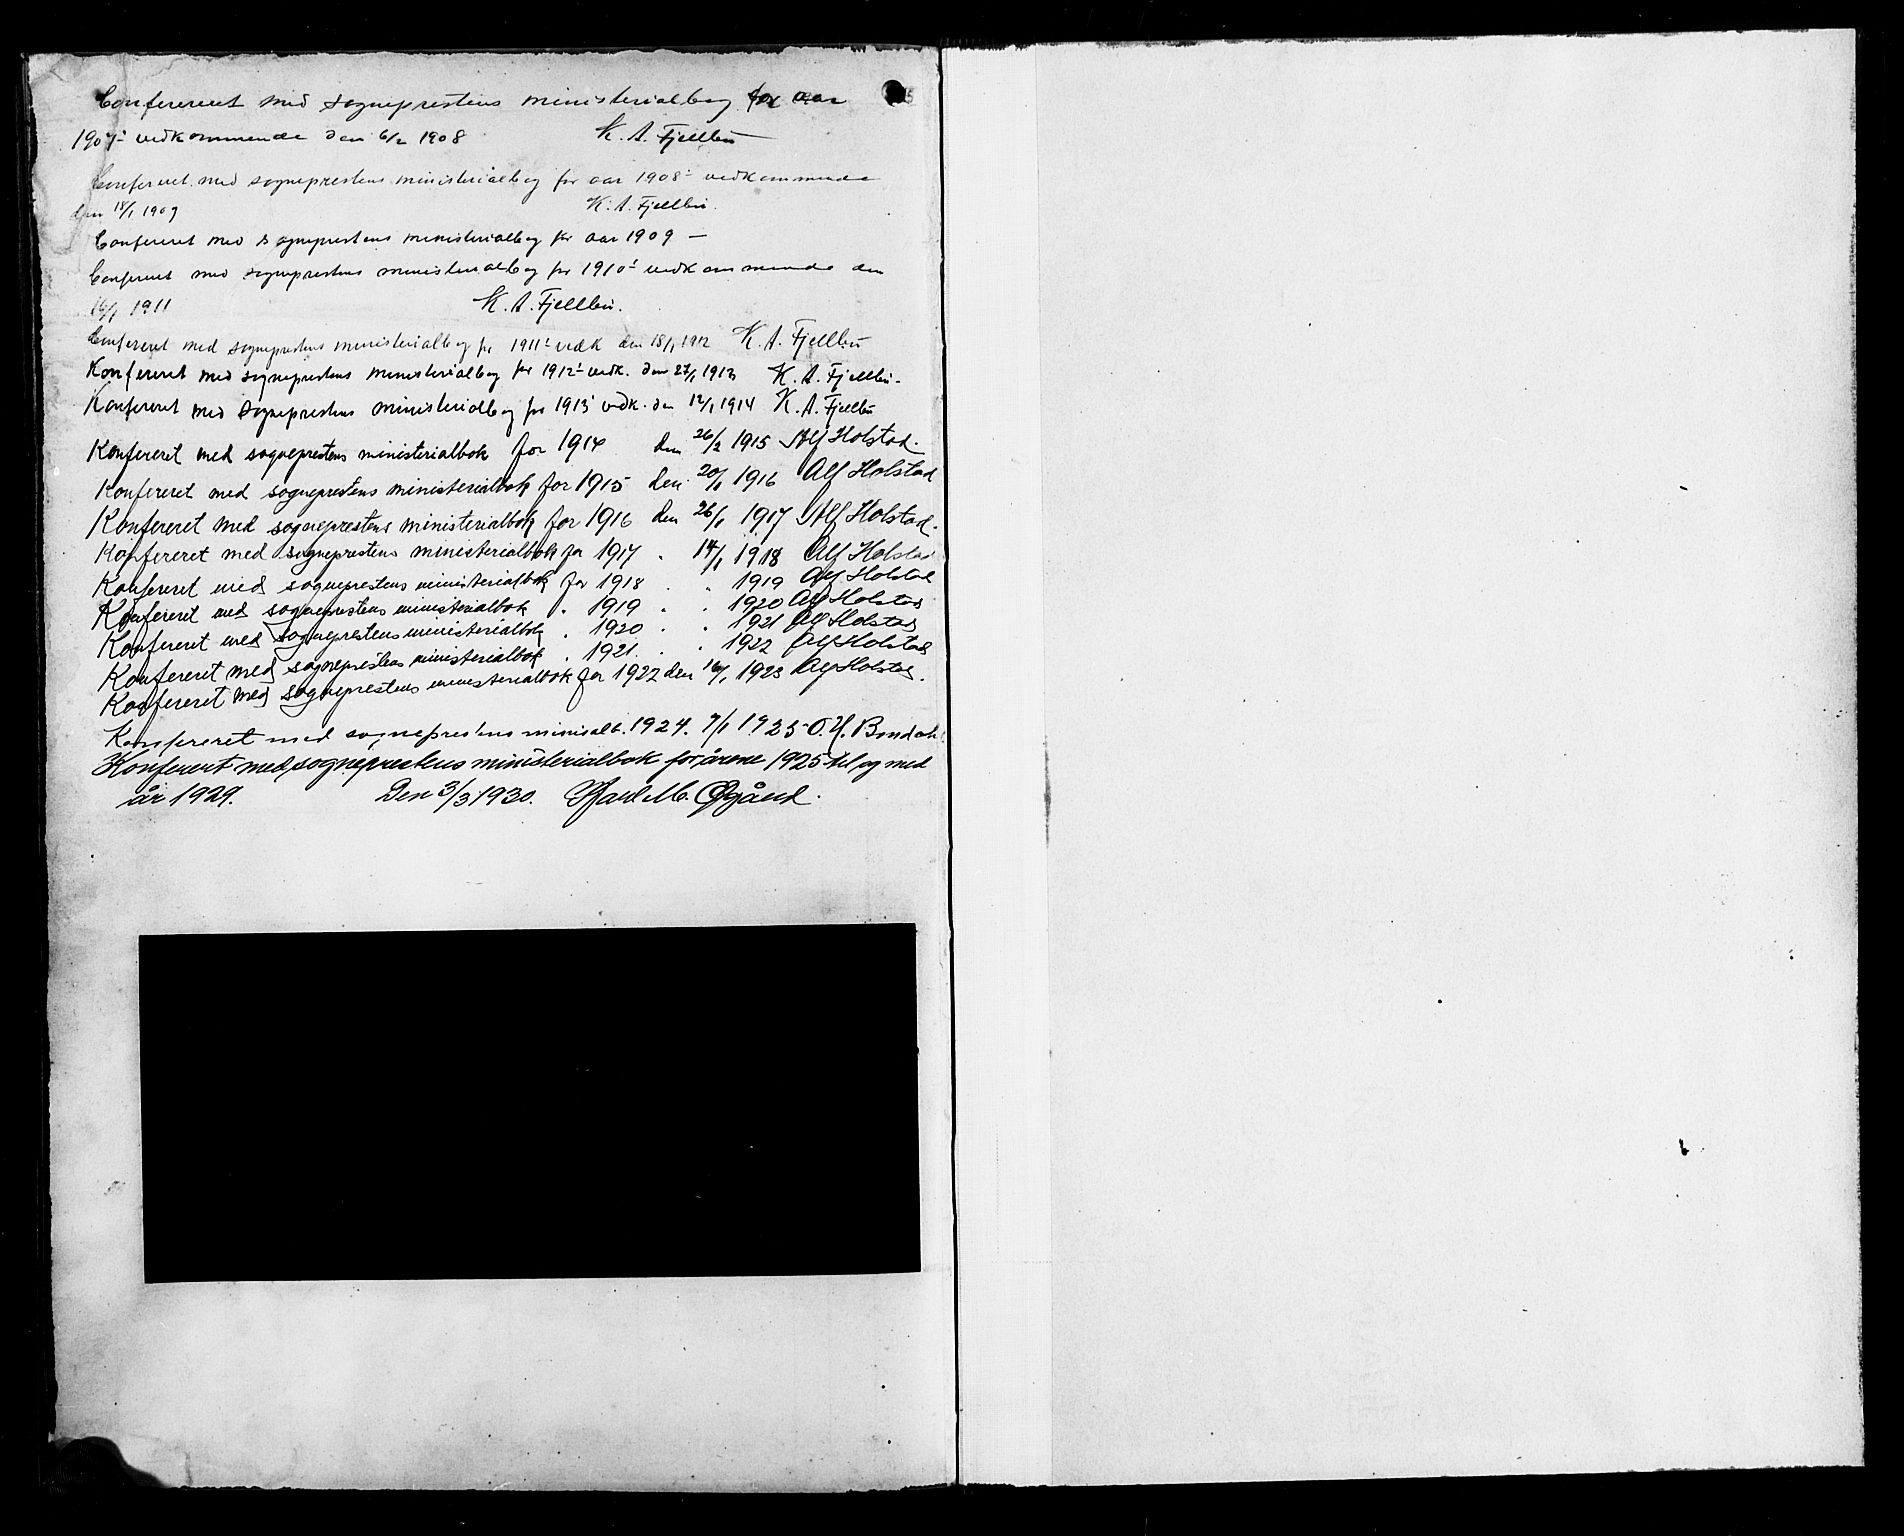 Confereret med sogneprestens ministerialbog for aar
1907's vedkommende den 6/2 1908 K. A. Fjellbu
Confereret med sogneprestens ministerialbog for aar 1908's vedkommende
den 18/1 1909 K. A. Fjellbu.
Confereret med sogneprestens ministerialbog for aar 1909 —
Confereret med sogneprestens ministerialbog for 1910's vedkommende den
16/1 1911 K. A. Fjellbu.
Confereret med sogneprestens ministerialbog for 1911's vedk den 18/1 1912 K. A. Fjellbu
Konfereret med sogneprestens ministerialbog for 1912's vedk. den 27/1 1913 K. A. Fjellbu.
Konfereret med sogneprestens ministerialbog for 1913's vedk. den 12/1 1914 K. A. Fjellbu
Konfereret med sogneprestens ministerialbok for 1914 den 26/2 1915 Alf Holstad.
Konfereret med sogneprestens ministerialbok for 1915 den 20/1 1916 Alf Holstad
Konfereret med sogneprestens ministerialbok for 1916 den 26/1 1917 Alf Holstad.
Konfereret med sogneprestens ministerialbok for 1917 . 14/1 1918 Alf Holstad
Konfereret med sogneprestens ministerialbok for 1918 . . 1919 Alf Holstad
Konfereret med sogneprestens ministerialbok . 1919 . . 1920 Alf Holstad
Konfereret med sogneprestens ministerialbok . 1920 . . 1921 Alf Holstad
Konfereret med sogneprestens ministerialbok . 1921 . . 1922 Alf Holstad
Konfereret med sogneprestens ministerialbok for 1922 den 16/1 1923 Alf Holstad.
Konfereret med sogneprestens minisalb. 1924. 9/1 1925 O. Y. Bondahl
Konferert med sogneprestens ministerialbok for årene 1925 til og med
år 1929. Den 3/3 1930. M. Øgård.